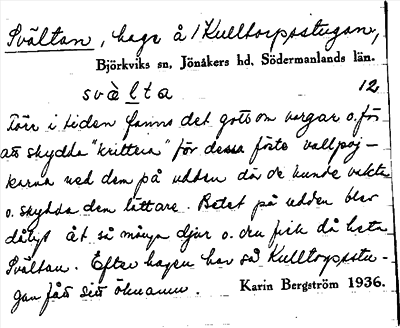 Svältan, hage å 1 Kulltorpsstugan,
Björkviks sn, Jönåkers hd, Södermanlands län.
svàlta 12
Förr i tiden fanns det gott om vargar o. för
att skydda "krittera" för dessa förde vallpoj-
karna ned dem på udden där de kunde vakta
o. skydda dem lättare. Betet på udden blev
dåligt åt så många djur o. den fick då heta
Svältan. Efter hagen har så Kulltorpsstu-
gan fått sitt öknamn. Karin Bergström 1936.